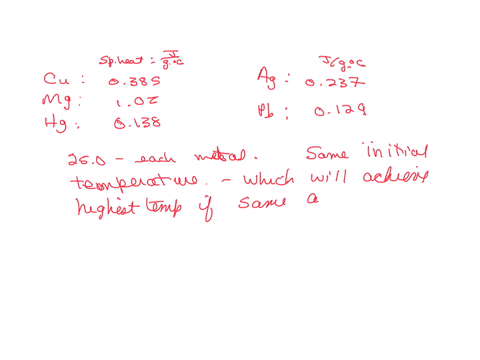 Sp. heat : J/g.°C
Cu : 0.385
Mg : 1.02
Hg : 0.138
J/g.°C
Ag : 0.237
Pb : 0.129
25.0 - each metal. Same initial
temperature. - which will achieve
highest temp if same a